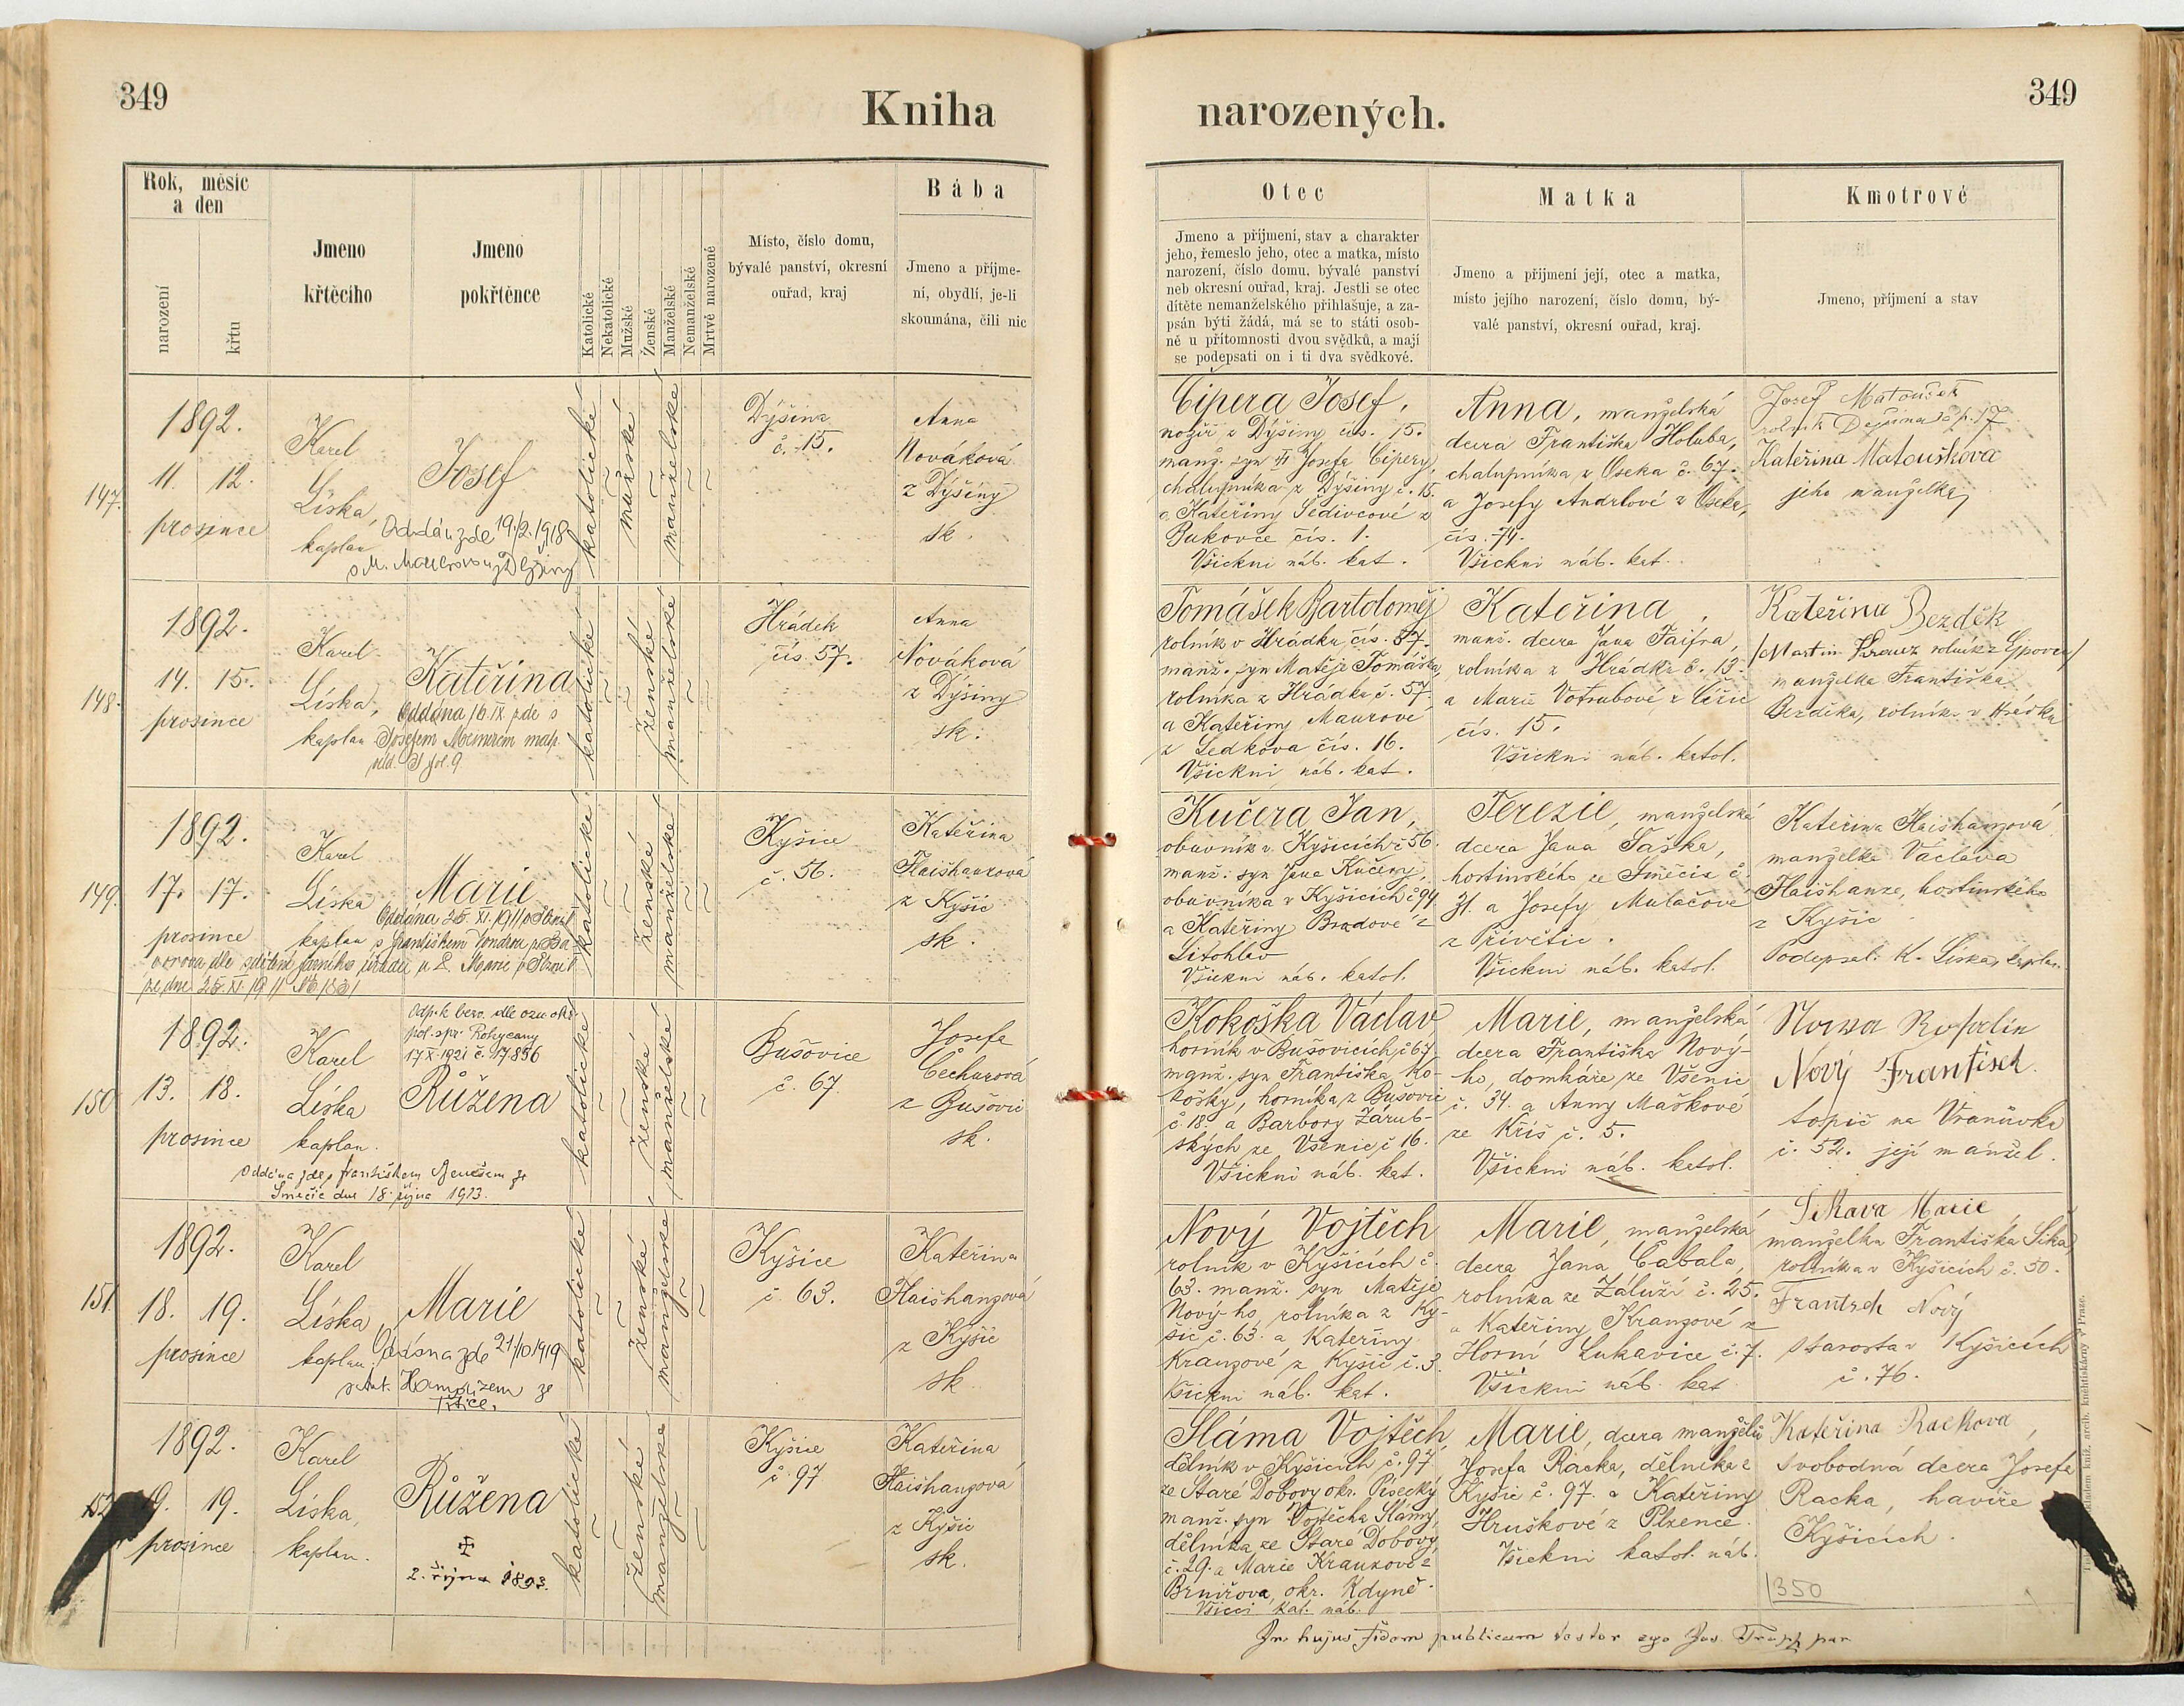 349
Kniha
narozených.
349
Rok, měsíc
a den
narození
křtu
Jmeno
křtěcího
Jmeno
pokřtěnce
Katolické
Nekatolické
Mužské
Ženské
Manželské
Nemanželské
Mrtvě narozené
Místo, číslo domu,
bývalé panství, okresní
ouřad, kraj
Bába
Jmeno a příjme-
ní, obydlí, je-li
skoumána, čili nic
Otec
Jmeno a příjmení, stav a charakter
jeho, řemeslo jeho, otec a matka, místo
narození, číslo domu, bývalé panství
neb okresní ouřad, kraj. Jestli se otec
dítěte nemanželského přihlašuje, a za-
psán býti žádá, má se to státi osob-
ně u přítomnosti dvou svědků, a mají
se podepsati on i ti dva svědkové.
Matka
Jmeno a přijmení její, otec a matka,
místo jejího narození, číslo domu, bý-
valé panství, okresní ouřad, kraj.
Kmotrové
Jmeno, příjmení a stav
147.
1892.
11. 12.
prosince
Karel
Líska,
kaplan
Josef
Oddán zde 19/2.1918
katolické
mužské
manželské
Dýšina
č. 15.
Anna
Nováková
z Dýšiny
sk.
Cipera Josef,
nožíř z Dýšiny čís. 15.
manž. syn Josefa Cipery,
chalupníka z Dýšiny č. 15.
a Kateřiny Šedivcové z
Bukovce čís. 1.
Všickni náb. kat.
Anna, manželská
dcera Františka Holuba,
chalupníka z Oseka č. 67.
a Josefy Andrlové z Oseka,
čís. 74.
Všickni náb. kat.
Josef Matoušek
rolník Dejšina čp. 17
Kateřina Matouškova
jeho manželka
148.
1892.
14. 15.
prosince
Karel
Líska,
kaplan
Kateřina
Oddána 16.IX zde s
Josefem
fol. 9.
katolické
ženské
manželské
Hrádek
čís. 57.
Anna
Nováková
z Dýšiny
sk.
Tomášek Bartoloměj
rolník v Hrádku čís. 57.
manž. syn Matěje Tomáška,
rolníka z Hrádku č. 57.
a Kateřiny Maurove
z Sedkova čís. 16.
Všickni náb. kat.
Kateřina,
manž. dcera Jana Faifra,
rolníka z Hrádku č. 13.
a Marie Votrubové z
čís. 15.
Všickni náb. katol.
Kateřina Bezděk
manželka Františka
Bezděka, rolníka v Hrádku
149.
1892.
17. 17.
prosince
Karel
Líska
kaplan
Marie
Oddána 25. XI. 1911
s Františkem
ze dne 25. XI. 1911
katolické
ženské
manželské
Kyšice
č. 56.
Kateřina
Flaišhanzová
z Kyšic
sk.
Kučera Jan,
obuvník v Kyšicích č 56.
manž. syn Jana Kučery,
obuvníka v Kyšicích č 94
a Kateřiny Bradové z
Litohlav
Všickni náb. katol.
Terezie, manželská
dcera Jana Taška,
hostinského ze Smědčic č.
31. a Josefy Mulačové
z Přívětic.
Všickni náb. katol.
Kateřina Flaišhanzová
manželka Václava
Flaišhanze, hostinského
z Kyšic
Podepsal: K. Líska, kaplan.
150
1892.
13. 18.
prosince
Karel
Líska
kaplan.
Odp. k bezv. dle ozn. okr.
pol. spr. Rokycany
17.X.1921 č. 17856
Růžena
Oddána zde s Františkem Benešem ze
Smědčic dne 18. října 1913.
katolické
ženské
manželské
Bušovice
č. 67
Josefa
Čechurová
z Bušovic
sk.
Kokoška Václav
horník v Bušovicích, č 67
manž. syn Františka Ko-
košky, horníka z Bušovic
č 18. a Barbory Zárub-
ských ze Všenic č 16.
Všickni náb. kat.
Marie, manželská
dcera Františka Nový-
ho, domkáře ze Všenic
č. 34. a Anny Maškové
ze Kříš č. 5.
Všickni náb. katol.
Nowa Rosalia
Nový František
topič na Vranůvka
č. 52. její manžel.
151.
1892.
18. 19.
prosince
Karel
Líska
kaplan.
Marie
Oddána zde 21/10 1919
katolické
ženské
manželské
Kyšice
č. 63.
Kateřina
Flaišhanzová
z Kyšic
sk
Nový Vojtěch
rolník v Kyšicích č.
63. manž. syn Matěje
Nový-ho, rolníka z Ky-
šic č. 63. a Kateřiny
Kranzové z Kyšic č. 3.
Všickni náb. kat.
Marie, manželská
dcera Jana Cabala,
rolníka ze Záluží č. 25.
a Kateřiny Kranzové z
Horní Lukavice č. 7.
Všickni náb. kat
Sikova Marie
manželka Františka Siky,
rolníka v Kyšicích č. 50.
Nový
starosta v Kyšicích
č. 76.
152
19. 19.
1892.
prosince
Karel
Líska,
kaplan.
Růžena
2. října 1893.
katolické
ženské
manželské
Kyšice
č. 97
Kateřina
Flaišhanzová
z Kyšic
sk.
Sláma Vojtěch,
dělník v Kyšicích č. 97
ze Staré Dobevy okr. Písecký
manž. syn Vojtěcha Slámy,
dělníka ze Staré Dobevy,
č. 29. a Marie Krauzové z
Brnířova, okr. Kdyně.
Všicci kat. náb.
Marie, dcera manželů
Josefa Racka, dělníka z
Kyšic č. 97. a Kateřiny
Hruškové z Plzence.
Všickni katol. náb.
Kateřina Rackova,
svobodná dcera Josefa
Racka, havíře
Kyšicích.
350
In hujus fidem publicam testor ego Jos.